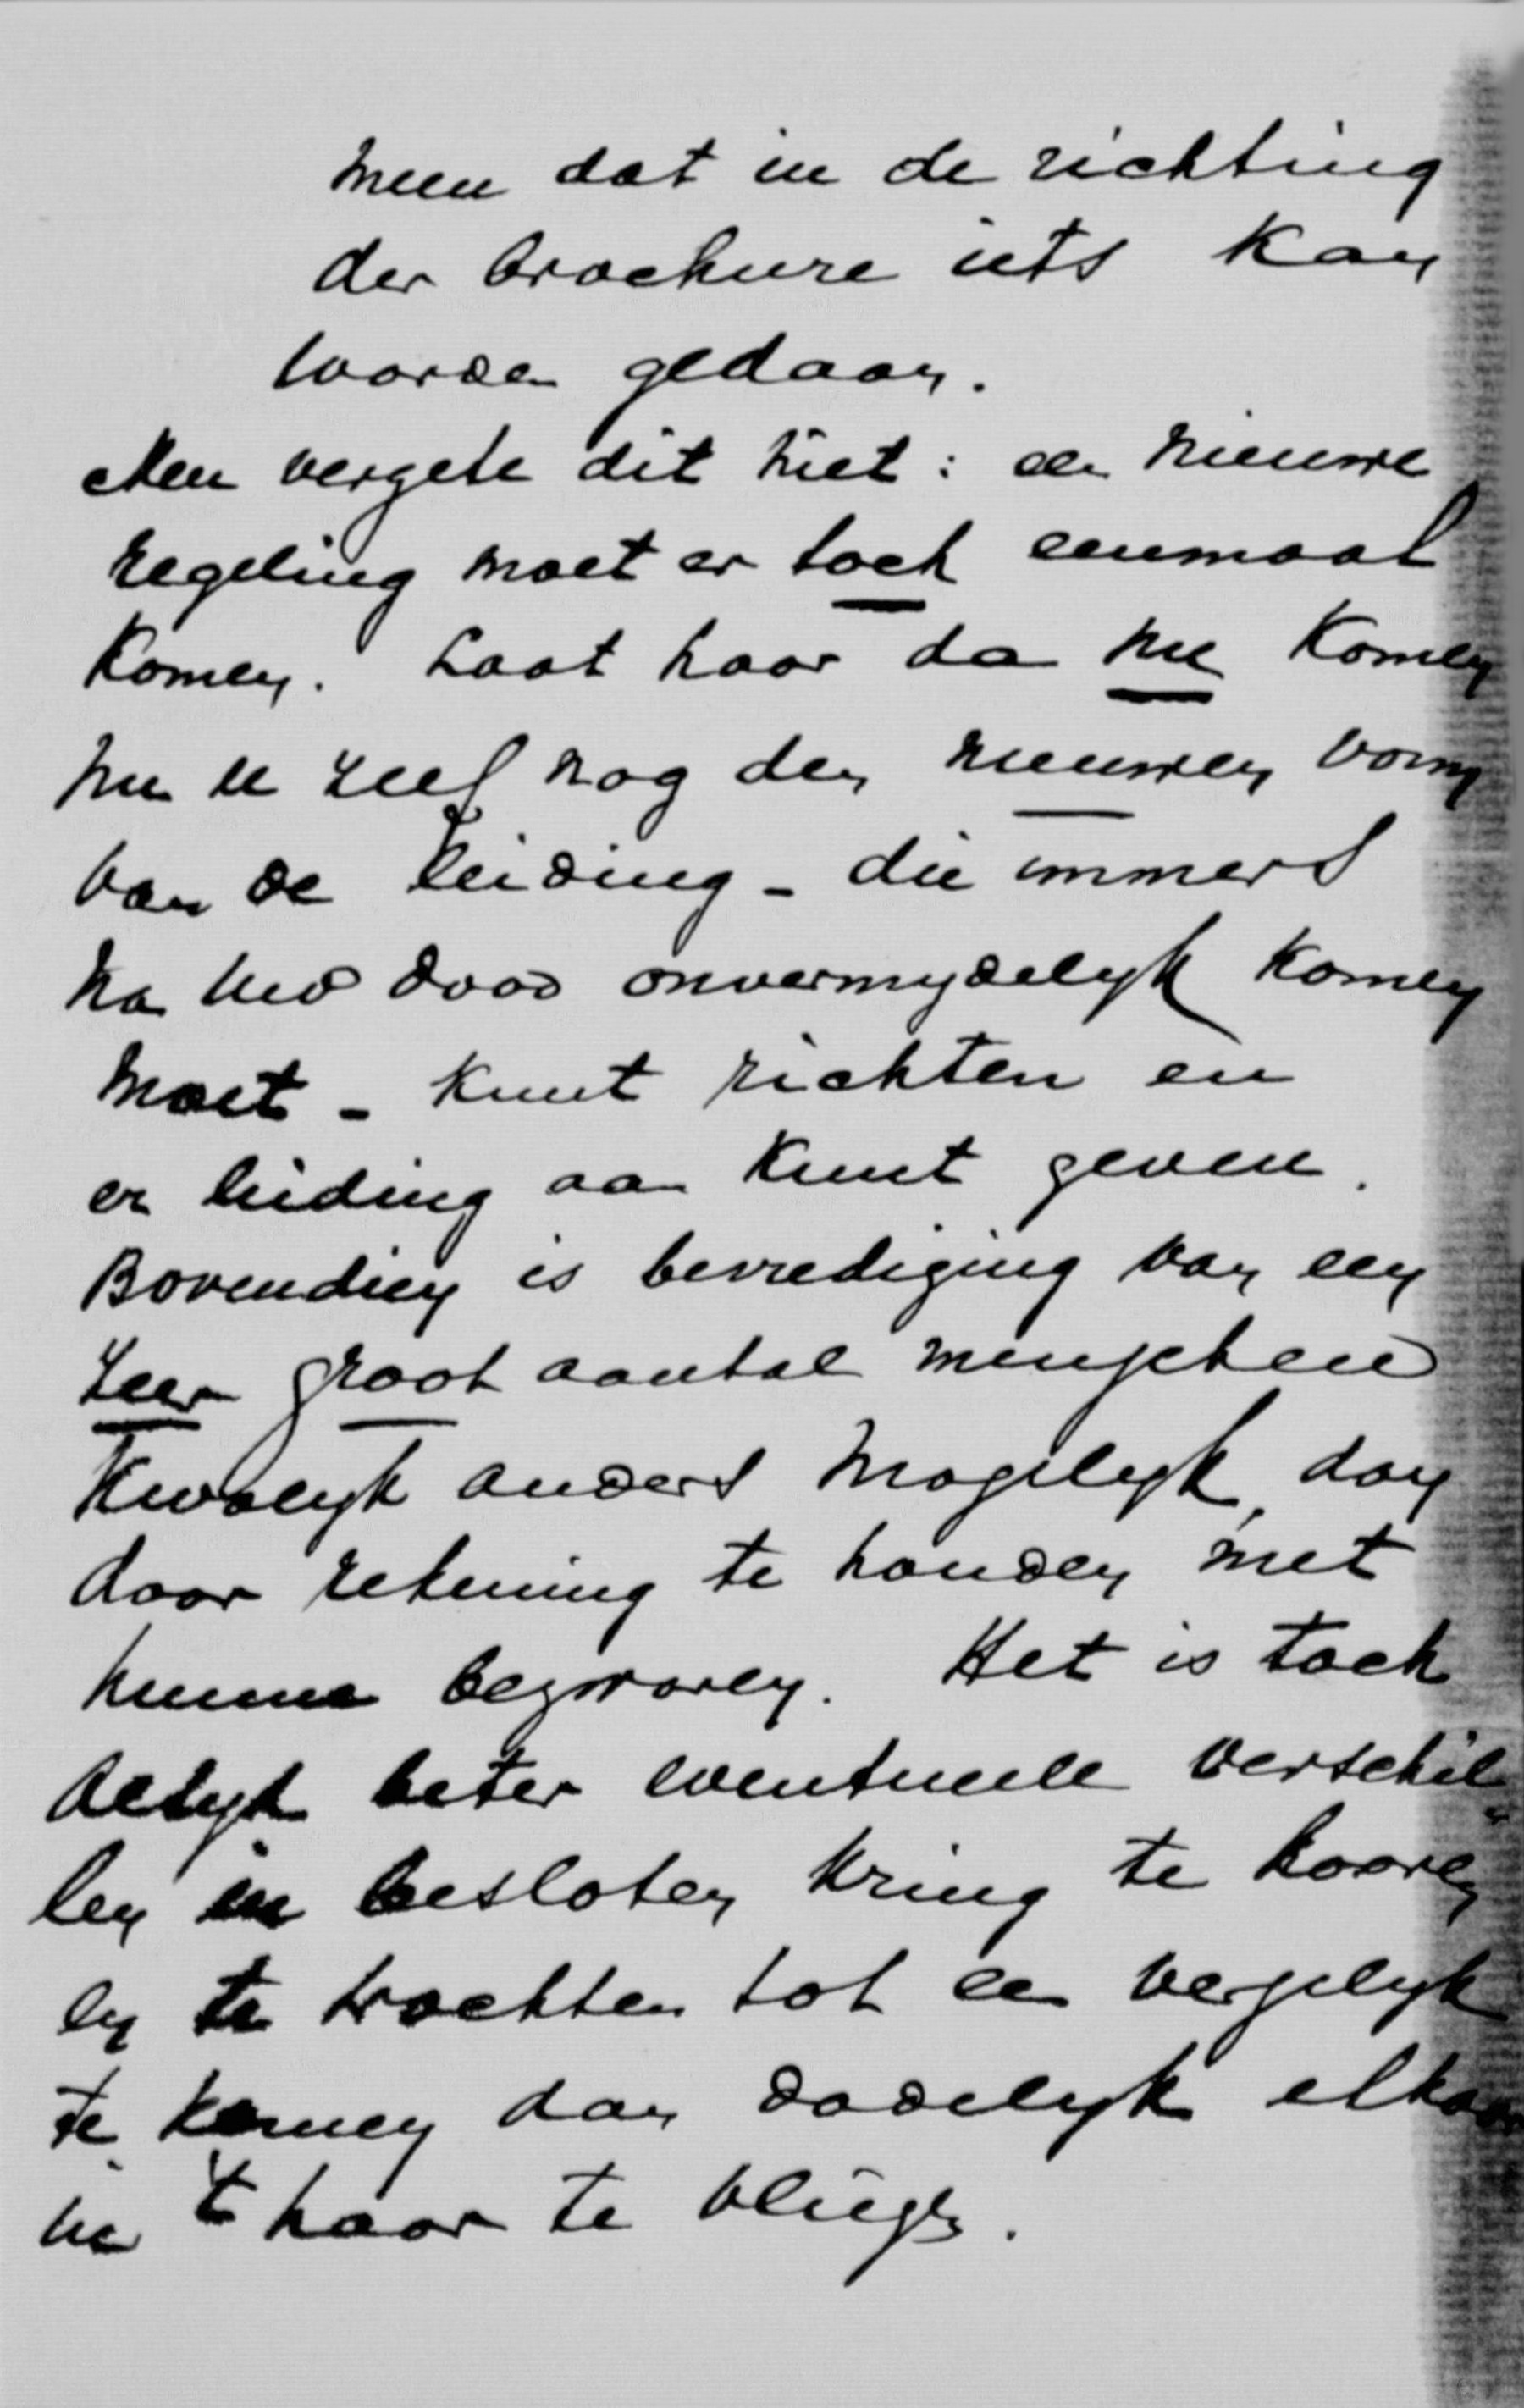 meen dat in de richting
der brochure iets kan
worden gedaan.
Men vergete dit niet: een nieuwe
regeling moet er toch eenmaal
komen. Laat haar da nu komen
nu U zelf nog den nieuwen vorm
van de leiding - die immers
na Uwd dood onvermydelyk komen
moet - kunt richten en
er leiding aan kunt geven.
Bovendien is bevrediging van een
zeer groot aantal menschen
kwalyk anders mogelyk, dan
door rekening te houden met
hunne bezwaren. Het is toch
altyd beter eventueele verschil
len in besloten kring te hooren
en te trachten tot een vergelyk
te komen dan dadelyk elkaar
in 't haar te vliegen.